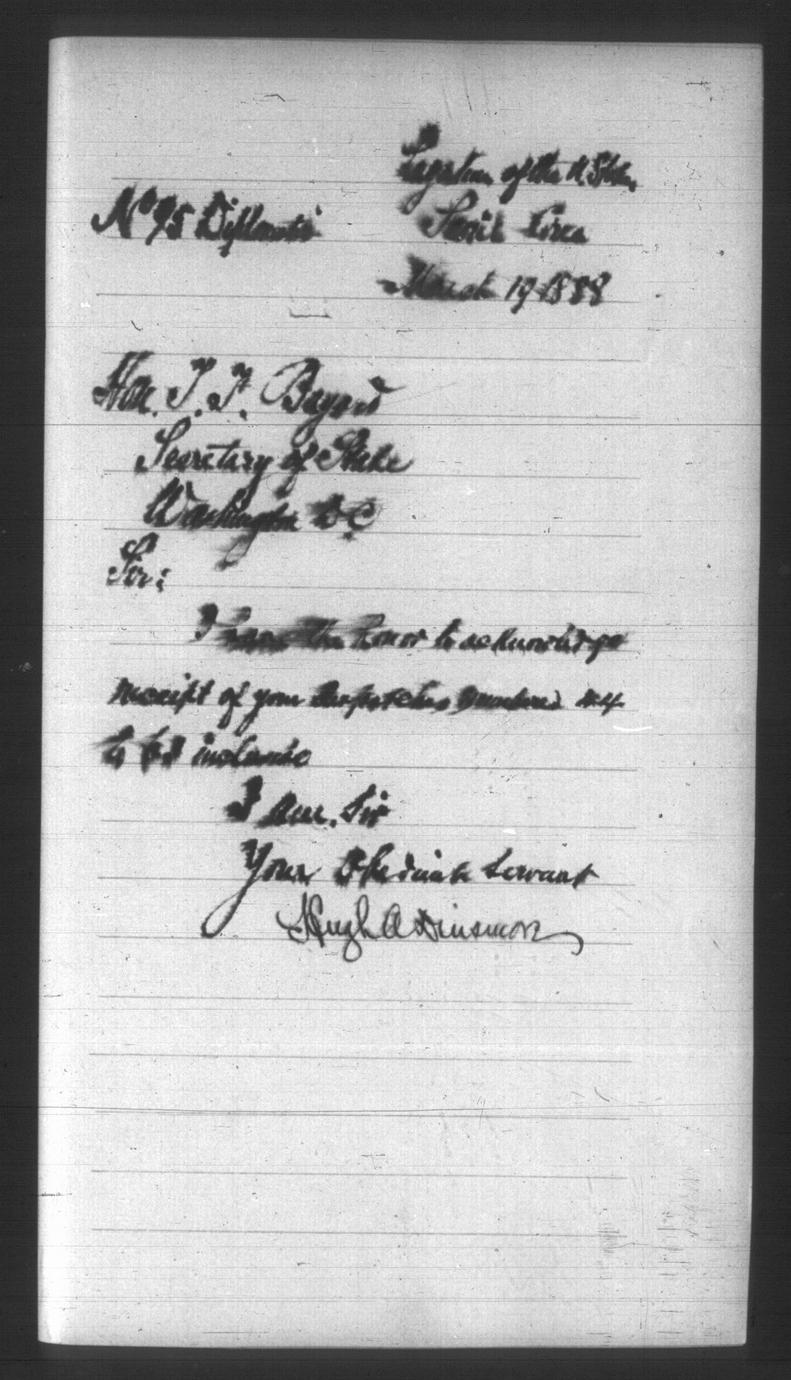 Legation of the U. States
No 95 Diplomatic
Seoul Corea
March 19 1888
Hon. T. F. Bayard
Secretary of State
Washington D C
Sir:
I have the honor to acknowledge
receipt of your despatches numbered
to 68 inclusive
I am, Sir
Your Obedient Servant
Hugh A Dinsmore